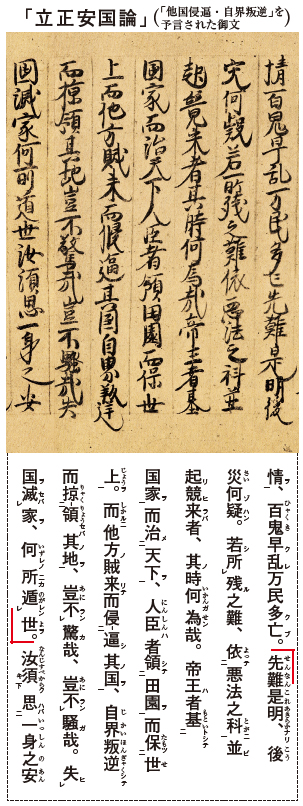 「立正安国論」(「他国侵逼・自界叛逆」を
予言された御文)
情百鬼早乱万民多亡先難是明後
災何疑若所残之難依悪法之科並
起競来者其時何為哉帝王者基
国家而治天下人臣者領田園而保世
上而他方賊来而侵逼其国自界叛逆
而掠領其地豈不驚哉豈不騒哉失
国滅家何所遁世汝須思一身之安
情、百鬼早乱万民多亡。先難是明、後
災何疑。若所残之難、依悪法之科並
起競来者、其時何為哉。帝王者基
国家而治天下、人臣者領田園而保世
上。而他方賊来而侵逼其国、自界叛逆
而掠領其地、豈不驚哉、豈不騒哉。失
国滅家、何所遁世。汝須思一身之安